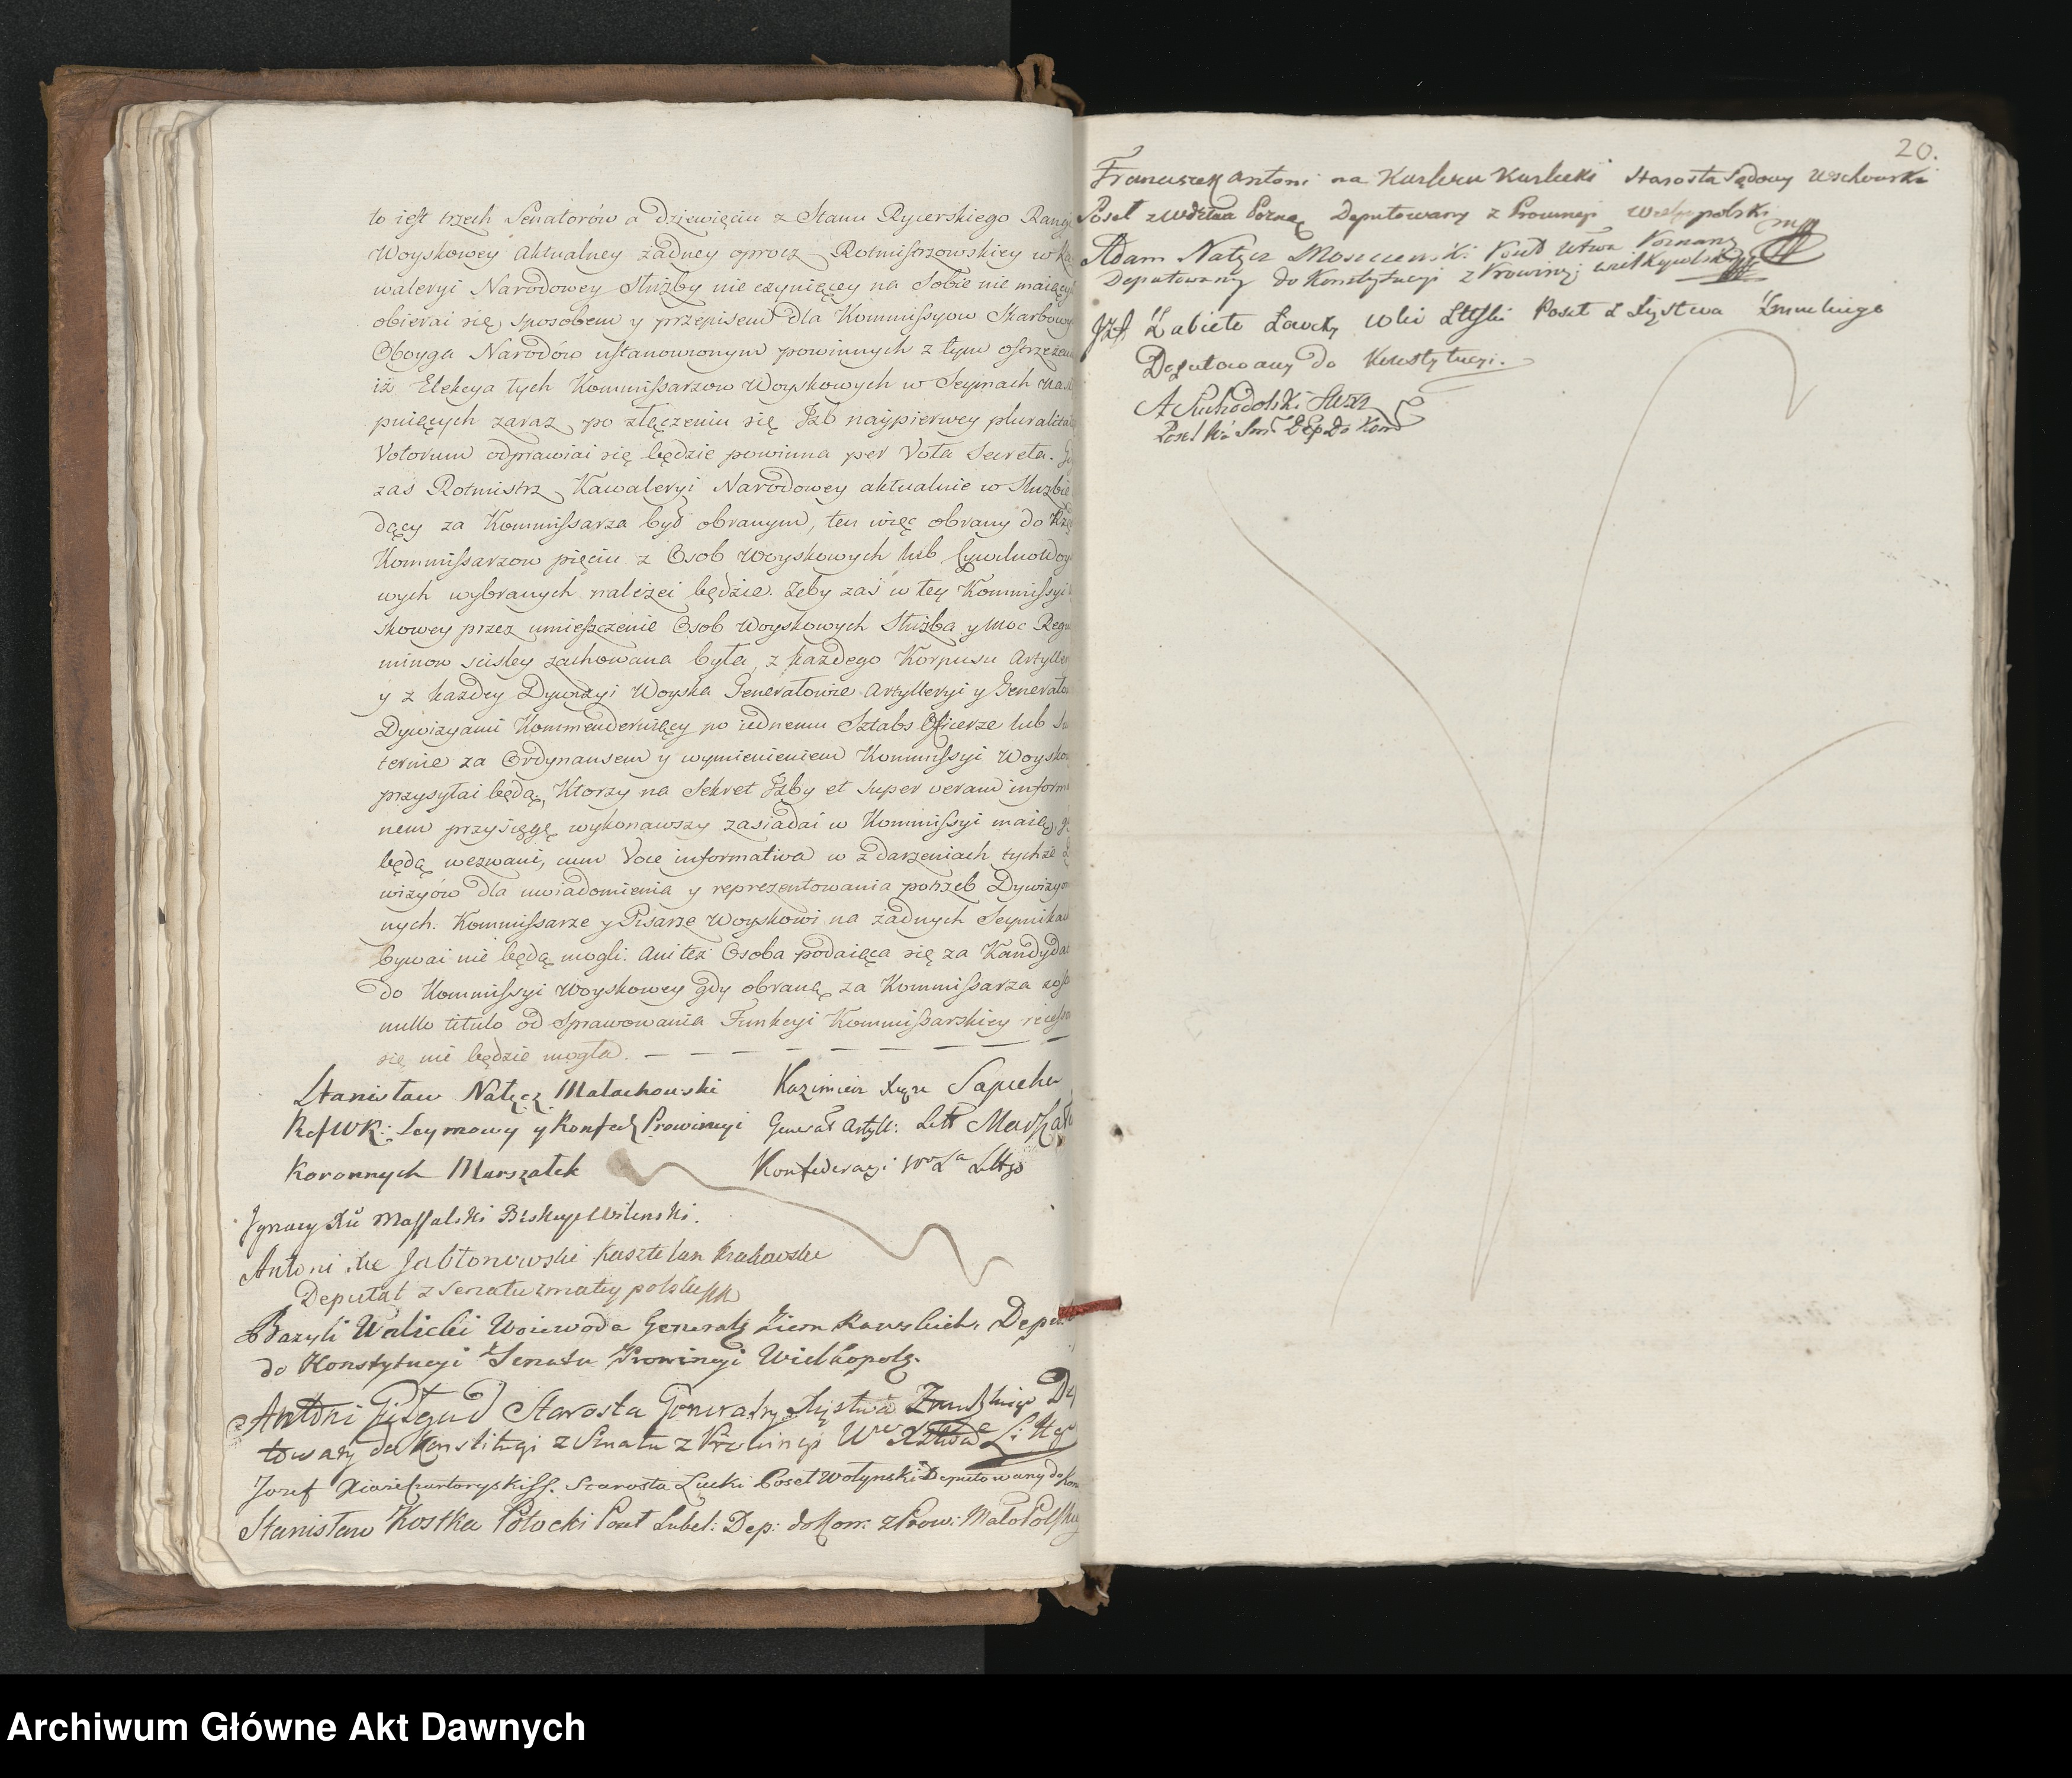 to iest trzech Senatorów a dziewięciu z Stanu Rycerskiego Rangi
Woyskowey aktualney żadney oprocz Rotmistrzowskiey w Ka
waleryi Narodowey Służby nie czyniącey na Sobie nie maiący
obierai się sposobem y przepisem dla Kommissyow Skarbowy
Oboyga Narodów ustanowionym powinnych z tym ostrzeżen
iż Elekcya tych Kommissarzow Woyskowych w Seymach nas
pniących zaraz po złączeniu się Izb naypierwey pluralita
Votorum odprawiai się będzie powinna per Vota Secreta. G
zaś Rotmistrz Kawaleryi Narodowey aktualnie w Służbie
dący za Kommissarza był obranym, ten więc obrany do Rzę
Kommissarzow pięciu z Osob Woyskowych lub Cywilno Woy
wych wybranych należei będzie. Żeby zaś w tey Kommissyi
skowey przez umieszczenie Osob Woyskowych Służba y moc Regu
minow scisley zachowana była, z każdego Korpusu Artyller
y z każdey Dywizyi Woyska Generałowie Artylleryi y Generało
Dywizyami Kommenderuiący po iednemu Sztabs Oficerze lub Su
ternie za Ordynansem y wymienieniem Kommissyi Woysko
przysyłai będą, Ktorzy na Sekret Izby et super veram inform
nem przysięgę wykonawszy zasiadai w Kommissyi maią, g
będą wezwani, cum Voce informativa w zdarzeniach tychże
wizyów dla uwiadomienia y reprezentowania potrzeb Dywizyo
nych. Kommissarze y Pisarze Woyskowi na żadnych Seymika
bywai nie będą mogli. Ani też Osoba podaiąca się za Kandyda
do Kommissyi Woyskowey gdy obraną za Kommissarza zos
nullo titulo od sprawowania Funkcyi Kommissarskiey
się nie będzie mogła. — — — — — — — —
Stanisław Nałęcz Małachowski
Ref WK: Seymowy y Konfed Prowincyi
Koronnych Marszałek
Kazimierz Xsże Sapieha
Generał Artyll: Litt Marszałe
Konfederacyi Litto
Ignacy Xże Massalski Biskup Wilenski.
Antoni Xże Jabłonowski Kasztelan Krakowski
Deputat z Senatu z małey polski
Bazyli Walicki Woiewoda Generalny Ziem Rawskich, Deput
do Konstytucyi z Senatu Prowincyi Wielkopolz.
Antoni Giełgud Starosta Generalny Xięstwa Zmudzkiego De
towany do Konstitucyi z Senatu z Prowincyi
Jozef Xiąże Czartoryski Starosta Łucki Poseł Wołynski Deputowany do Kon
Stanisław Kostka Potocki Poseł Lubel: Dep: do Kon: z Prow: Mało Polskiy
20.
Franciszek Antoni na Kurlezu Kurlecki Starosta Sądowy Wschowski
Poseł z Wdztwa Pozna Deputowany z Prowincyi Wielkopolski mp
Adam Nałęcz Moszczenski Poseł Wtwa Poznan
Deputowany do Konstytucyi z Prowincyi wielkopolski
Jzf Zabiełło Łowczy Wlki Litski Poseł z Xięstwa Zmudzkiego
Deputowany do Konstytucyi.
A Suchodolski
Poseł Wa Smo Dep Do Kons